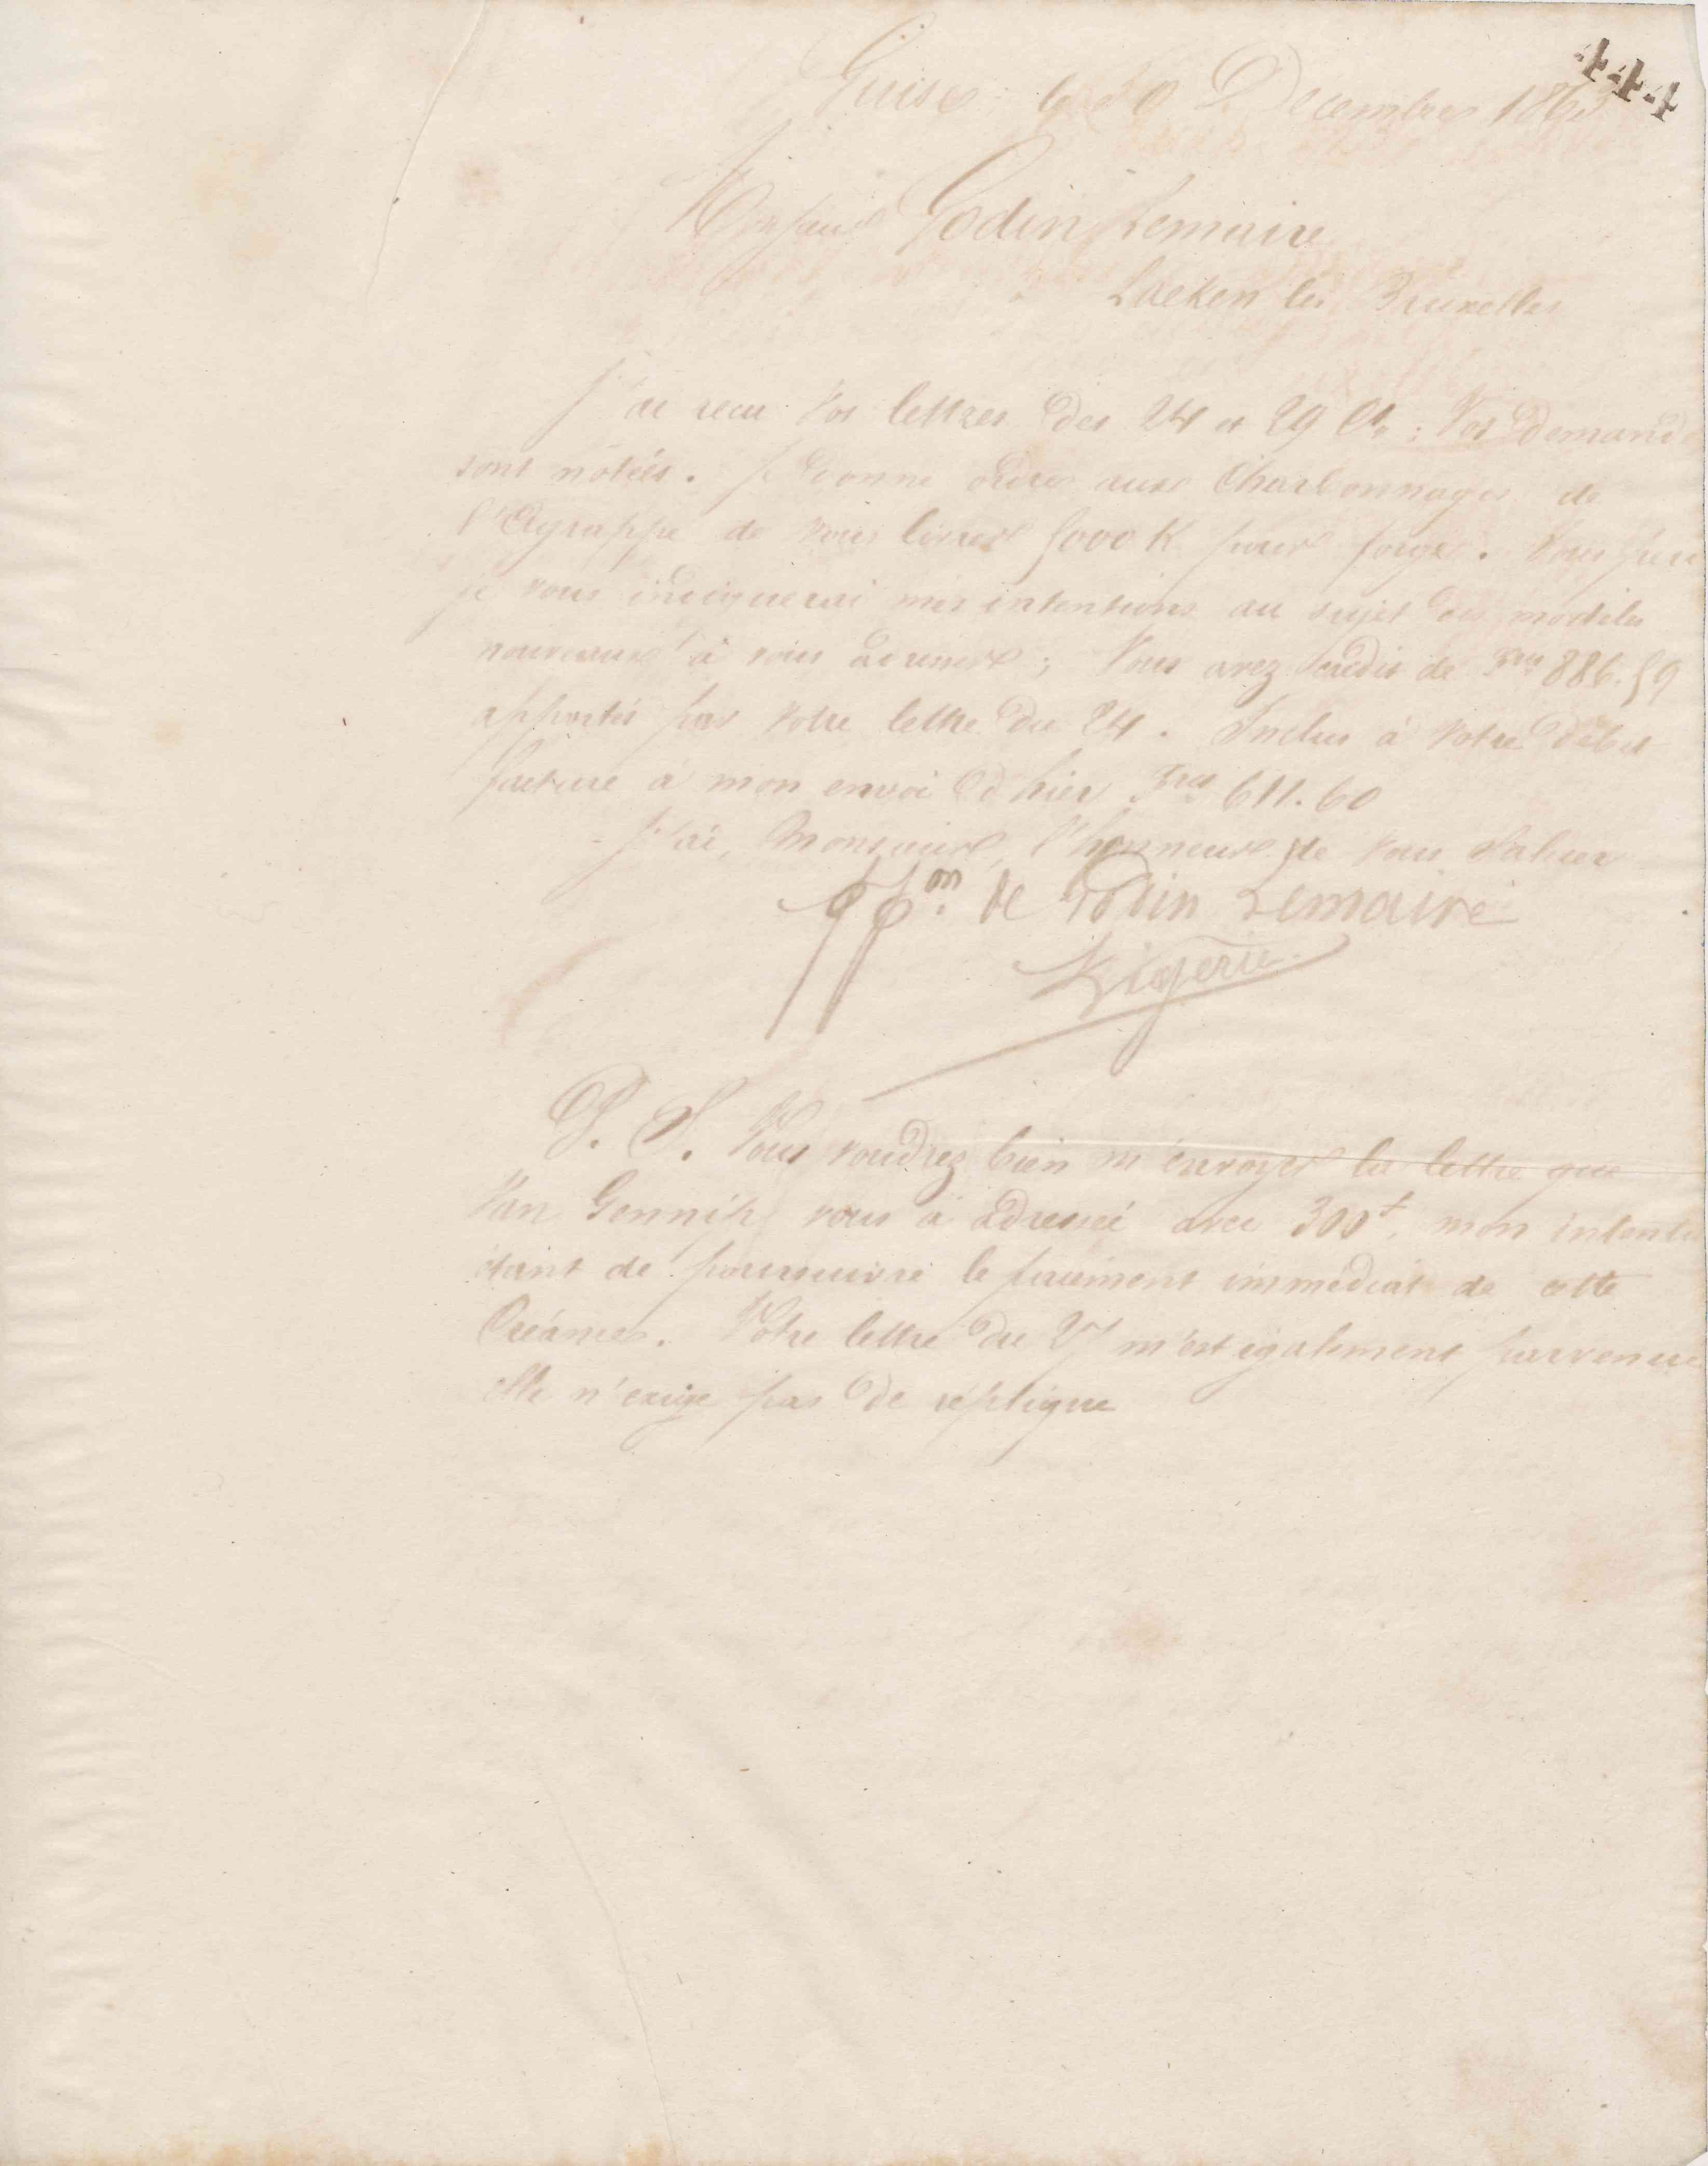 444
Guise le 30 Decembre 1865
Monsieur Godin Lemaire
Laeken les Bruxelles
J'ai recu vos lettres des 24 et 29 Ct : Vos demandes
sont notées. Je donne ordre aux Charbonnages de
l'Agrappe de vous livrer 5000 K pour forge. Sous peu
je vous indiquerai mes intentions au sujet des modèles
nouveaux à vous adresser ; Vous avez crédit de Frcs 886.59
apportés par votre lettre du 24. Inclus à votre débit
facture à mon envoi d'hier Frcs 611.60
J'ai, Monsieur, l'honneur de vous saluer
ppon de Godin Lemaire
P. S. Vous voudrez bien m'envoyer la lettre que
Van Gennip vous a adressée avec 300f, mon intention
étant de poursuivre le paiement immédiat de cette
Créance. Votre lettre du 27 m'est également parvenue
elle n'exige pas de réplique